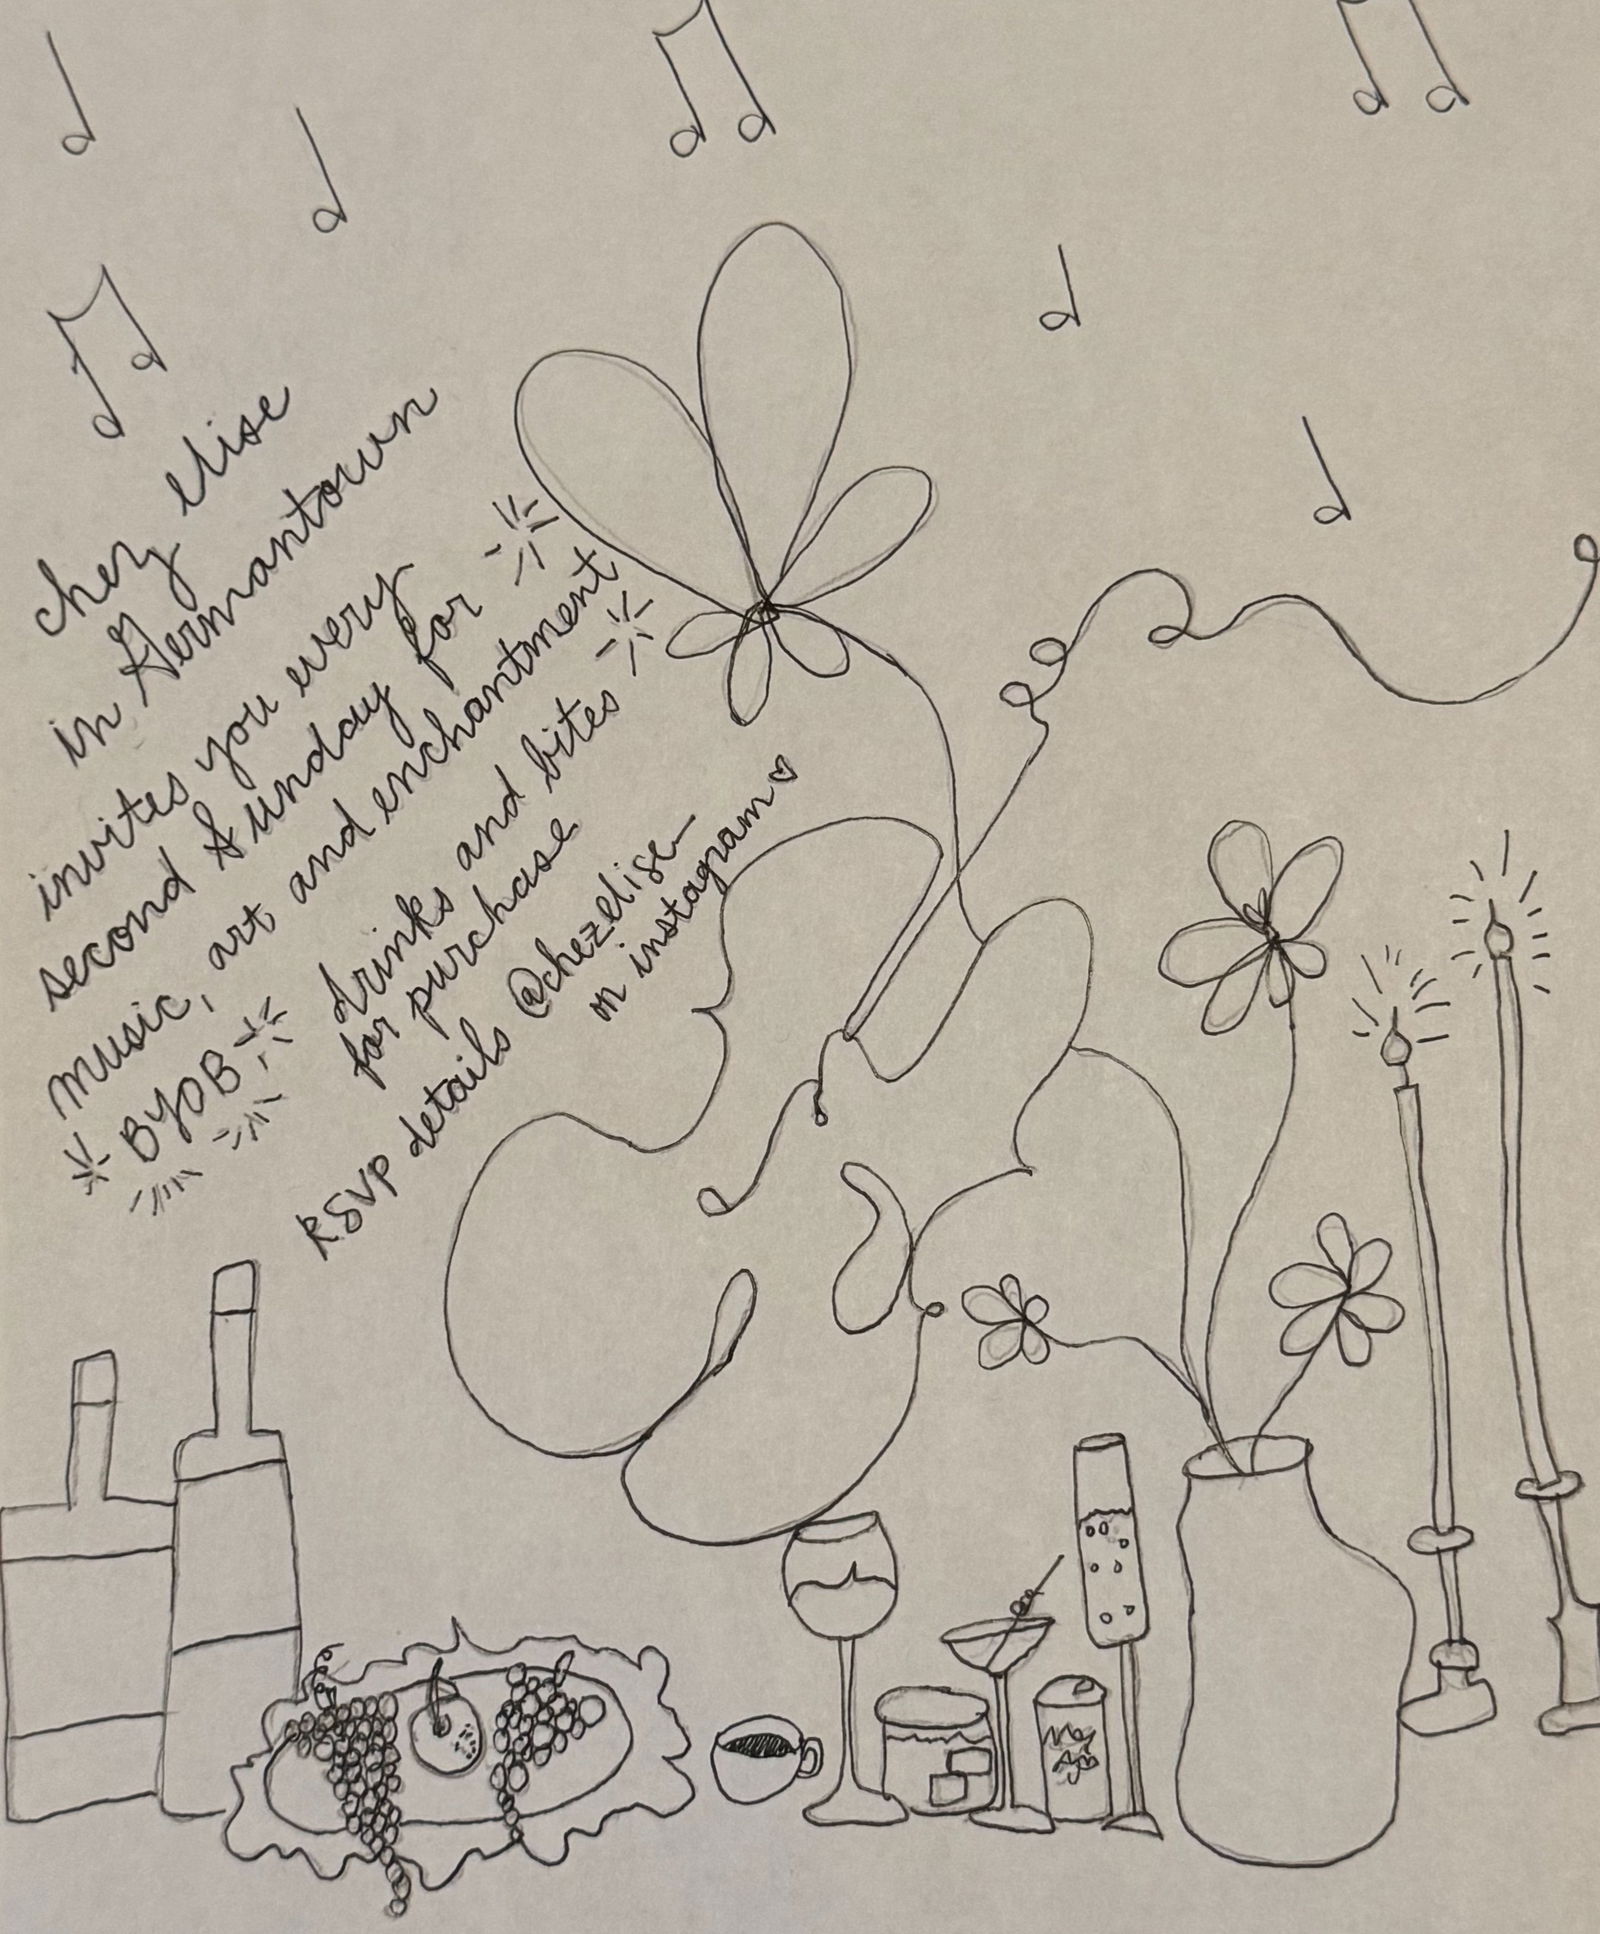 chez elise
in Germantown
invites you every
second Sunday for
music, art and enchantment
BYOB
drinks and bites
for purchase
RSVP details @chezelise_
on instagram